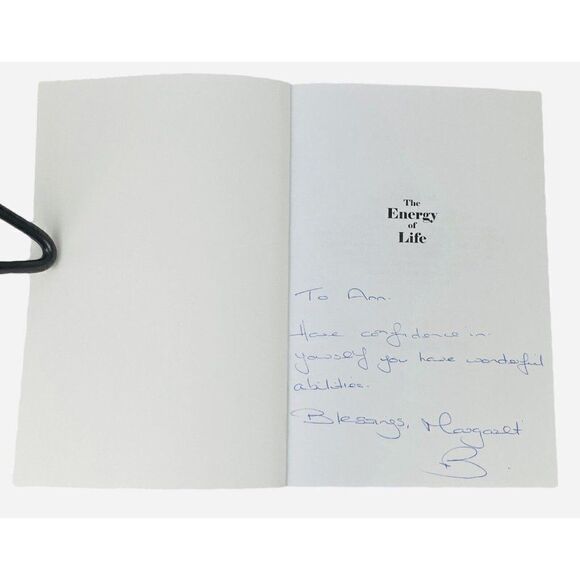 The
Energy
of
Life
To Ann.
Have confidence in
yourself you have wonderful
abilities.
Blessings, Margaret
B.